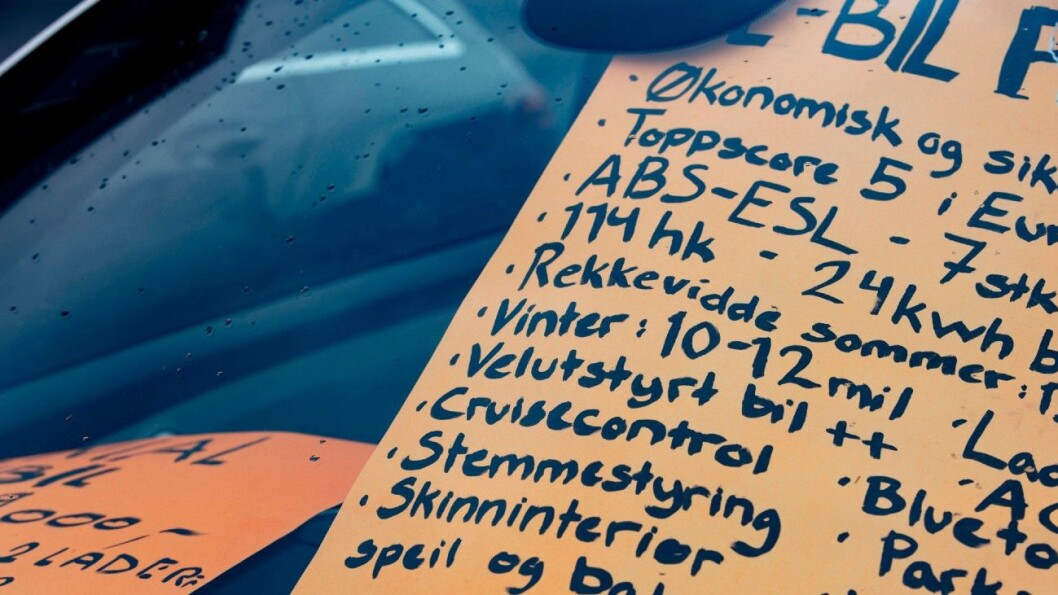 -BIL
Økonomisk og
Toppscore 5 i
ABS-ESL - 7 stk
114 hk - 24kwh
Rekkevidde sommer:
Vinter: 10-12 mil
Velutstyrt bil ++
Cruisecontrol
Stemmestyring
Skinninteriør
speil og
BIL
000,-
2 LADERE